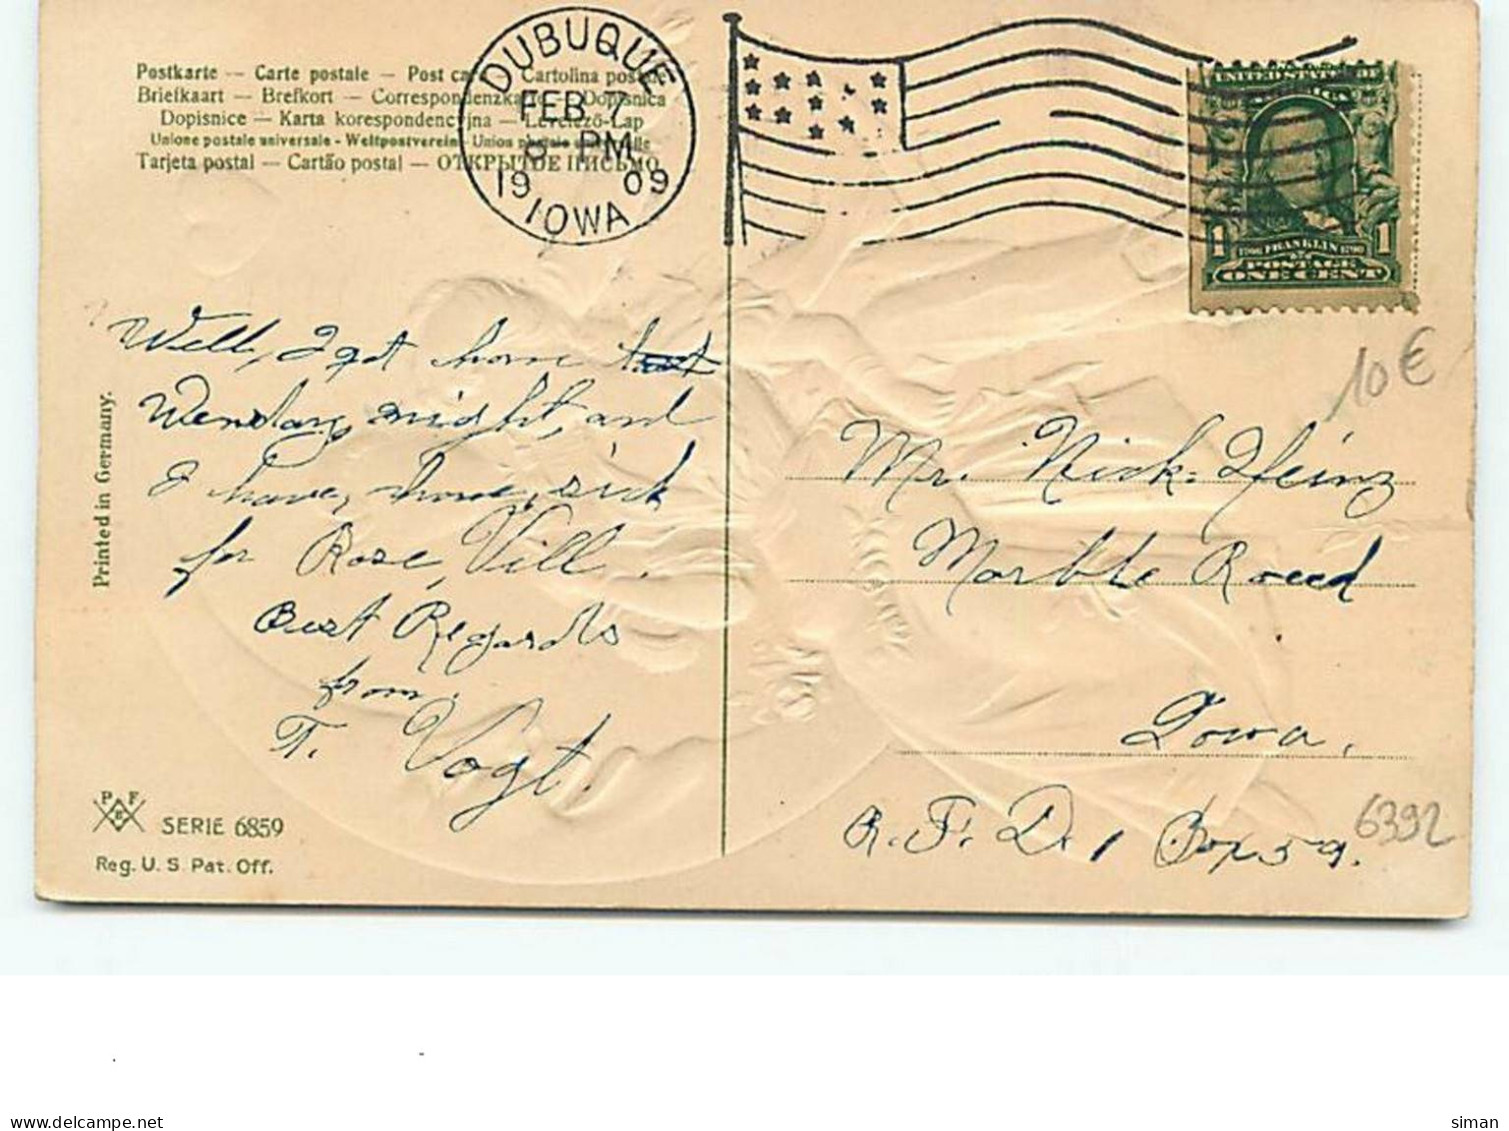 Postkarte — Carte postale — Post card — Cartolina postale
Briefkaart — Brefkort — Correspondenzkarte — Dopisnica
Dopisnice — Karta korespondencyjna — Levelező-Lap
Unione postale universale - Weltpostverein - Union postale universelle
Tarjeta postal — Cartão postal — ОТКРЫТОЕ ПИСЬМО
DUBUQUE
FEB 7
PM
1909
IOWA
UNITED STATES OF
AMERICA
1 FRANKLIN 1
POSTAGE
ONE CENT
10 €
Well, I got home
Wensday, night, and
I have, home, sick
for Rose, Vill.
Best Regards
from
T. Vogt.
Printed in Germany.
Mr. Nick. Heinz
Marble Roced
Iowa.
R. F. D. 1 Box 59.
6392
P F
SERIE 6859
Reg. U. S. Pat. Off.
delcampe.net
siman